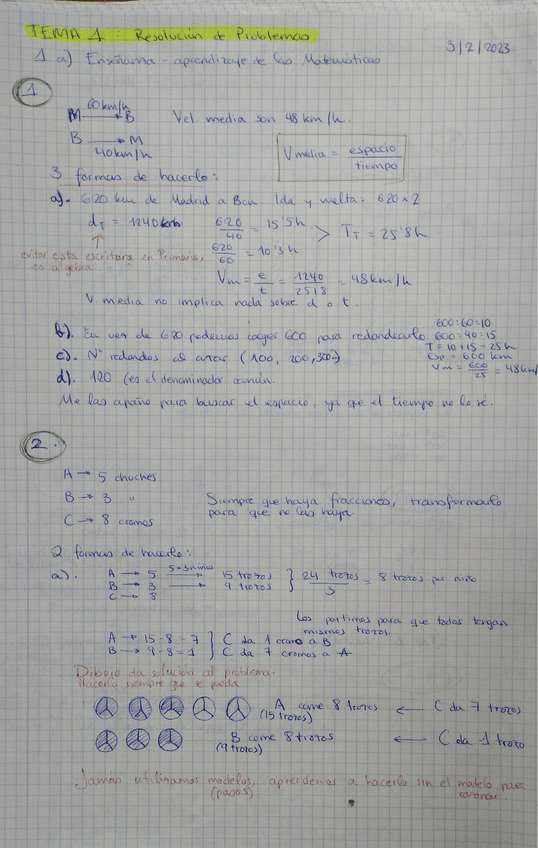 TEMA 1: Resolución de Problemas
3/2/2023
1 a) Enseñanza - aprendizaje de las Matemáticas
1
60km/h
M → B Vel. media son 48 km/h.
B → M
40km/h
Vmedia = espacio / tiempo
3 formas de hacerlo:
a). 620 km de Madrid a Bcn. Ida y vuelta: 620 x 2
dT = 1240 km
620/40 = 15'5h
620/60 = 10'3h
> TT = 25'8h
evitar esta escritura en Primaria, es algebra
Vm = e/t = 1240/25'8 = 48km/h
V. media no implica nada sobre d o t.
b). En vez de 620 podemos coger 600 para redondearlo
600:60=10
600:40=15
T = 10 + 15 = 25h
Esp = 600 km
Vm = 600/25 = 48km/h
c). Nº redondos al azar (100, 200, 300..)
d). 120 (es el denominador común.
Me las apaño para buscar el espacio, ya que el tiempo no lo sé.
2.
A → 5 chuches
B → 3 "
C → 8 cromos
Siempre que haya fracciones, transformarlo
para que no las haya
2 formas de hacerlo:
a). A → 5 5·3niños → 15 trozos
B → 3 → 9 trozos
C → 8
} 24 trozos / 3 = 8 trozos por niño
Los partimos para que todos tengan
mismos trozos.
A → 15-8 = 7
B → 9-8 = 1
} C da 1 cromo a B
C da 7 cromos a A
Dibujo da solución al problema.
Hacerlo siempre que se pueda
A come 8 trozos ← C da 7 trozos
(15 trozos)
B come 8 trozos ← C da 1 trozo
(9 trozos)
Jamas utilizamos modelos, aprendemos a hacerlo sin el modelo para
(pasos) razonar.